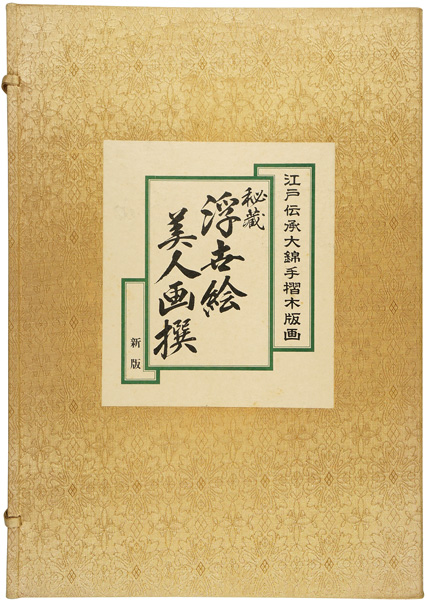 江戸伝承大錦手摺木版画
秘蔵
浮世絵
美人画撰
新版